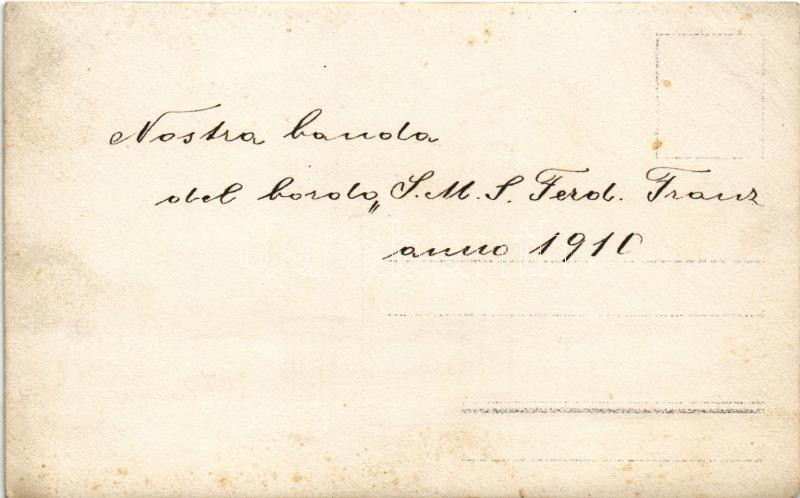 Nostra banda
del bordo „S.M.S. Ferd. Franz
anno 1910